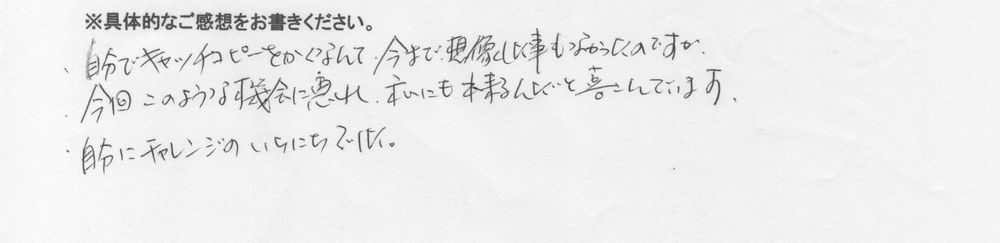 ※具体的なご感想をお書きください。
・自分でキャッチコピーをかくなんて、今まで、想像した事もなかったのですが、
・今回このような機会に恵まれ、私にも来るんだと喜こんでいます。
・自分にチャレンジのいちにちでした。